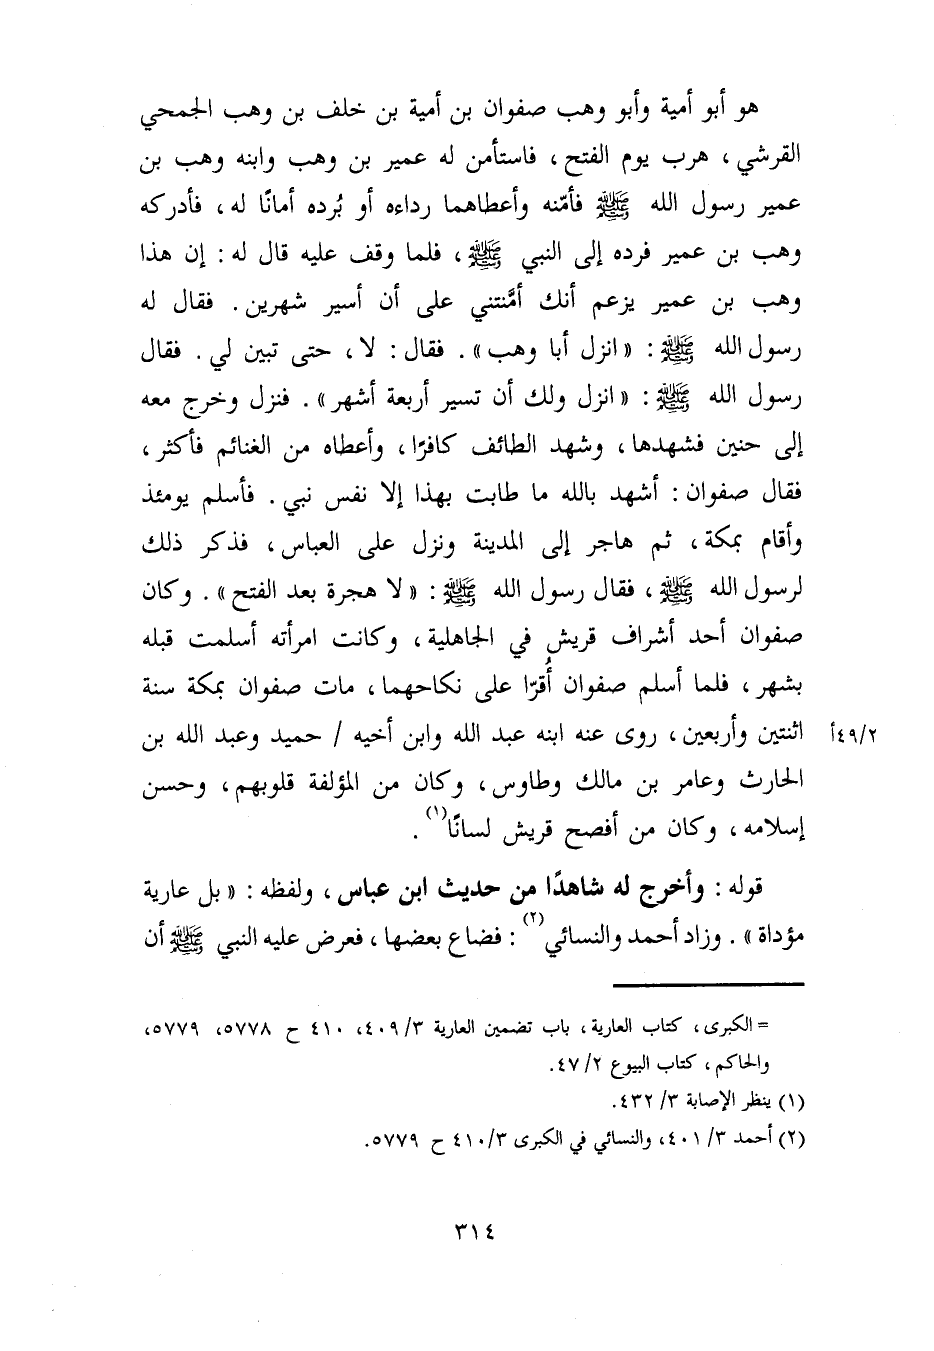 هو أبو أمية وأبو وهب صفوان بن أمية بن خلف بن وهب الجمحي
القرشي، هرب يوم الفتح، فاستأمن له عمير بن وهب وابنه وهب بن
عمير رسول الله ﷺ فأمّنه وأعطاهما رداءه أو بُرده أمانًا له، فأدركه
وهب بن عمير فرده إلى النبي ﷺ، فلما وقف عليه قال له: إن هذا
وهب بن عمير يزعم أنك أمَّنتني على أن أسير شهرين. فقال له
رسول الله ﷺ: «انزل أبا وهب». فقال: لا، حتى تبين لي. فقال
رسول الله ﷺ: «انزل ولك أن تسير أربعة أشهر». فنزل وخرج معه
إلى حنين فشهدها، وشهد الطائف كافرًا، وأعطاه من الغنائم فأكثر،
فقال صفوان: أشهد بالله ما طابت بهذا إلا نفس نبي. فأسلم يومئذ
وأقام بمكة، ثم هاجر إلى المدينة ونزل على العباس، فذكر ذلك
لرسول الله ﷺ، فقال رسول الله ﷺ: «لا هجرة بعد الفتح». وكان
صفوان أحد أشراف قريش في الجاهلية، وكانت امرأته أسلمت قبله
بشهر، فلما أسلم صفوان أُقرّا على نكاحهما، مات صفوان بمكة سنة
اثنتين وأربعين، روى عنه ابنه عبد الله وابن أخيه / حميد وعبد الله بن ٤٩/٢أ
الحارث وعامر بن مالك وطاوس، وكان من المؤلفة قلوبهم، وحسن
إسلامه، وكان من أفصح قريش لسانًا(١).
قوله: وأخرج له شاهدًا من حديث ابن عباس، ولفظه: «بل عارية
مؤداة». وزاد أحمد والنسائي(٢): فضاع بعضها، فعرض عليه النبي ﷺ أن
= الكبرى، كتاب العارية، باب تضمين العارية ٣/ ٤٠٩، ٤١٠ ح ٥٧٧٨، ٥٧٧٩،
والحاكم، كتاب البيوع ٢/ ٤٧.
(١) ينظر الإصابة ٣/ ٤٣٢.
(٢) أحمد ٣/ ٤٠١، والنسائي في الكبرى ٣/ ٤١٠ ح ٥٧٧٩.
٣١٤